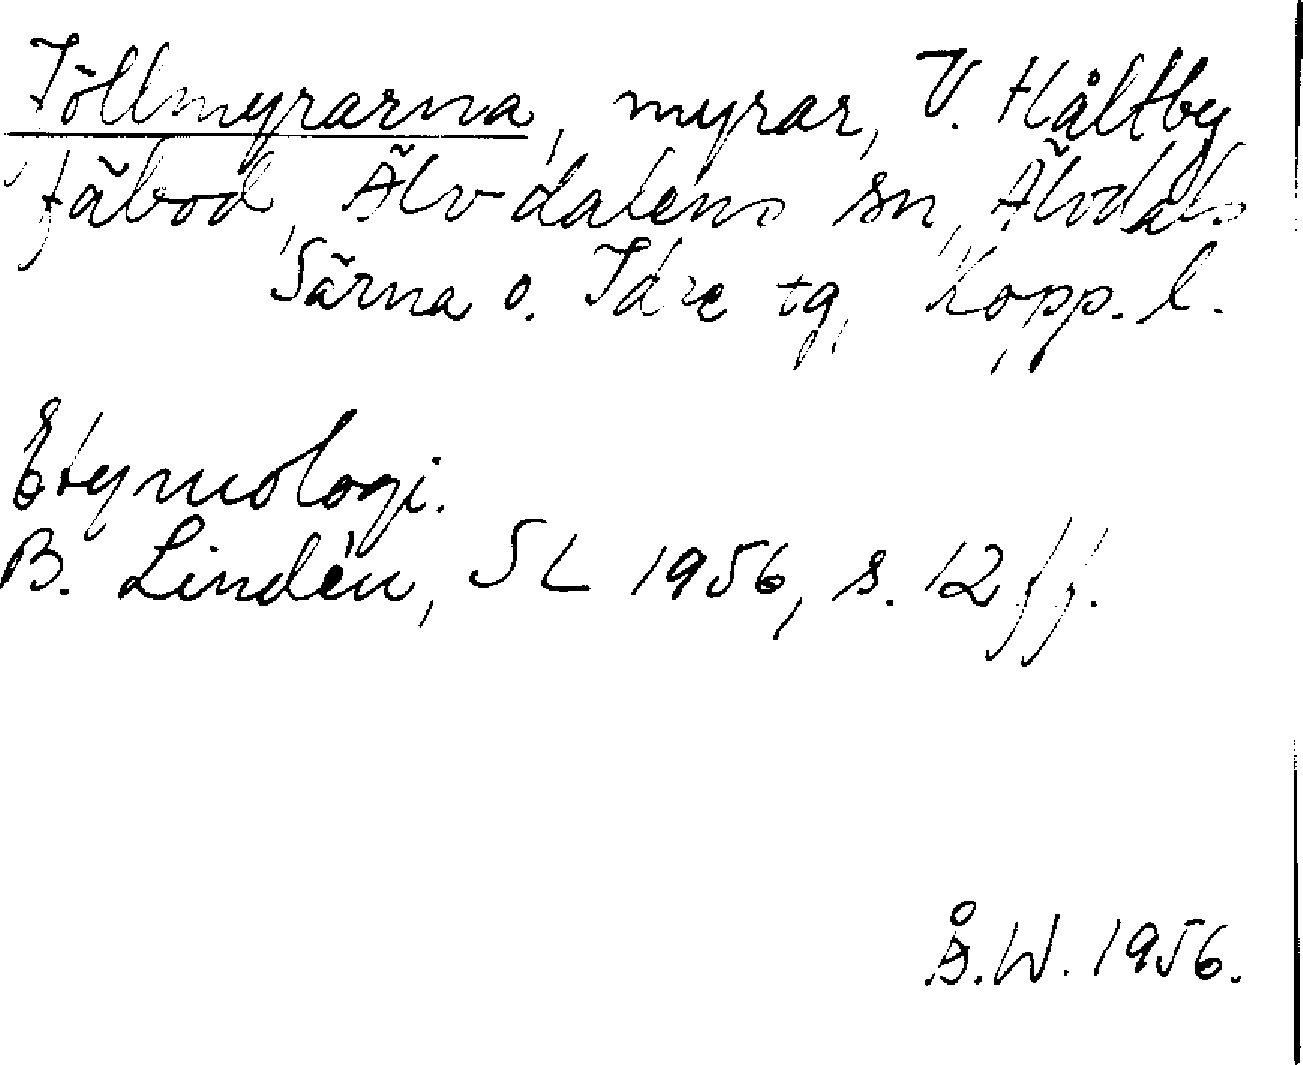 Jöllmyrarna, myrar, V. Håltby
fäbod, Älvdalens sn, Älvdals
Särna o. Idre tg, Kopp. l.
Etymologi.
B. Lindén, SL 1956, s. 12 ff.
Å.W. 1956.